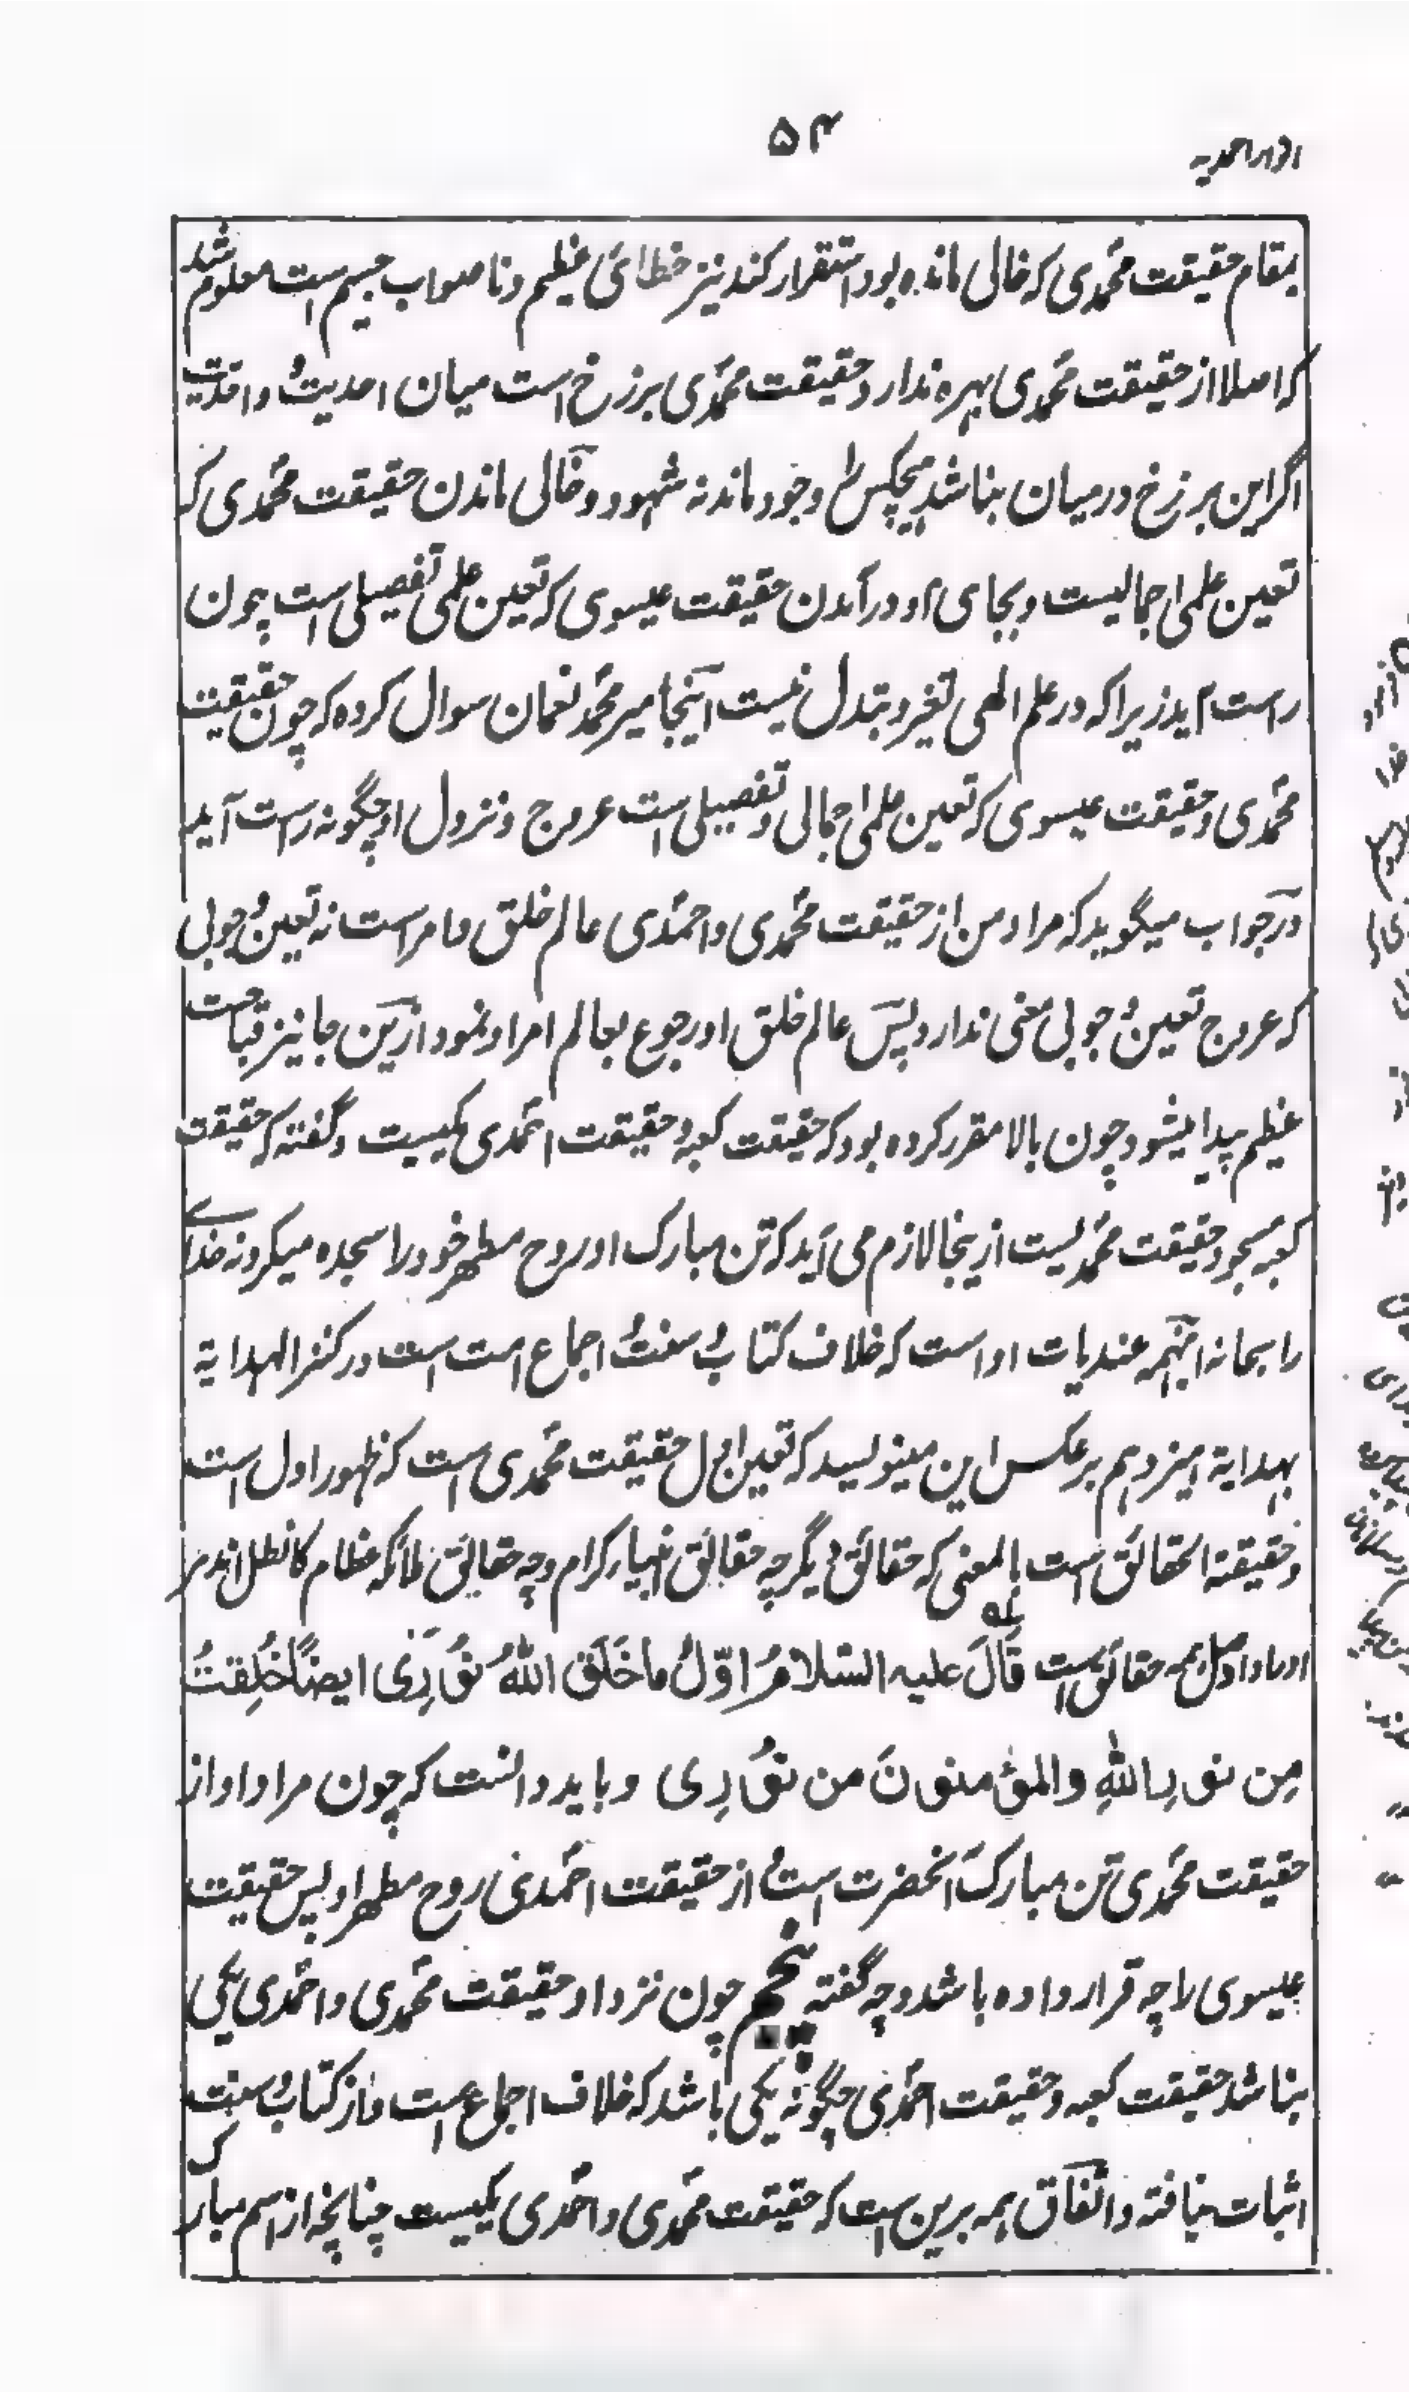 ۵۴
انوار احمدیه
بمقام حقیقت محمدی که خالی مانده بود استقرار کند نیز خطائ عظیم و ناصواب جسیم است معلوم شد
که اصلا از حقیقت محمدی بهره ندارد حقیقت محمدی برزخ است میان احدیت و واقدیت
اگر این برزخ در میان نباشد هیچکس را وجود ماند نه شهود و خالی ماندن حقیقت محمدی که
تعین علمی اجمالیست و بجای او در آمدن حقیقت عیسوی که تعین علمی تفصیلی است چون
راست آید زیرا که در علم الهی تغیر و تبدل نیست اینجا میر محمد نعمان سوال کرده که چون حقیقت
محمدی و حقیقت عیسوی که تعین علمی اجمالی و تفصیلی است عروج و نزول او چگونه راست آید
در جواب میگوید که مراد من از حقیقت محمدی و احمدی عالم خلق و امر است نه تعین وجوبی
که عروج تعین وجوبی معنی ندارد پس عالم خلق او رجوع بعالم امر او نمود ازین جا نیز قباحت
عظیم پیدا میشود چون بالا مقرر کرده بود که حقیقت کعبه و حقیقت احمدی یکیست و گفته که حقیقت
کعبه مسجود حقیقت محمدیست ازینجا لازم می آید که تن مبارک او روح مطهر خود را سجده میکرد نه خدای
را سبحانه اینهمه عندیات او است که خلاف کتاب و سنت و اجماع امت است در کنز الهدایة
بهدایة سیزدهم برعکس این مینویسد که تعین اول حقیقت محمدی است که ظهور اول است
و حقیقة الحقائق است بالمعنی که حقائق دیگر چه حقائق انبیار کرام و چه حقائق ملائکه عظام کا نظل اندر
او را و اوصل همه حقائق است قَالَ علیه السلامُ اوّلُ ما خَلَق اللهُ نُورِی ایضًا خُلِقتُ
مِن نورِ اللهِ والمؤمنونَ من نُورِی و باید دانست که چون مراد او از
حقیقت محمدی تن مبارک آنحضرت است و از حقیقت احمدی روح مطهر او پس حقیقت
عیسوی را چه قرار داده باشد و چه گفته پنجم چون نزد او حقیقت محمدی و احمدی یکی
نباشد حقیقت کعبه و حقیقت احمدی چگونه یکی باشد که خلاف اجماع است و از کتاب و سنت
اثبات نیافته و اتفاق همه برین است که حقیقت محمدی و احمدی یکیست چنانچه از اسم مبارک